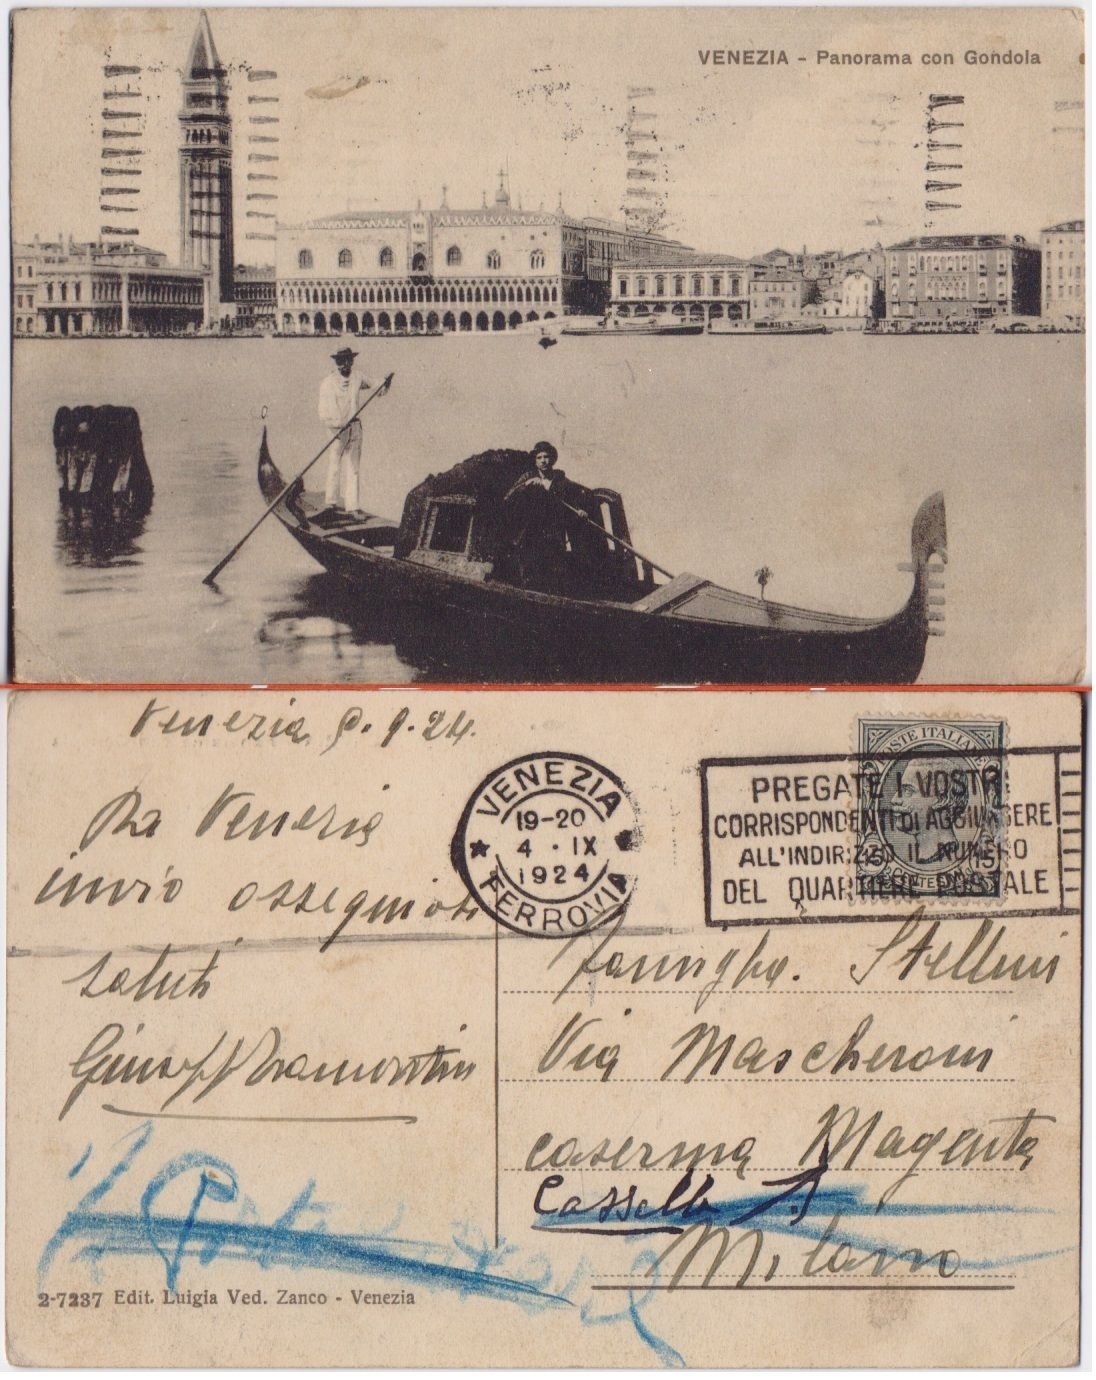 VENEZIA - Panorama con Gondola
Venezia 9.24.
VENEZIA
19-20
4 · IX
1924
FERROVIA
POSTE ITALIANE
15 15
PREGATE I VOSTRI
CORRISPONDENTI DI AGGIUNGERE
ALL'INDIRIZZO IL NUMERO
DEL QUARTIERE POSTALE
Da Venezia
invio ossequiosi
saluti
Famigha. Stellini
Via Mascheroni
caserma Magenta
Casella
Milano
2-7237 Edit. Luigia Ved. Zanco - Venezia